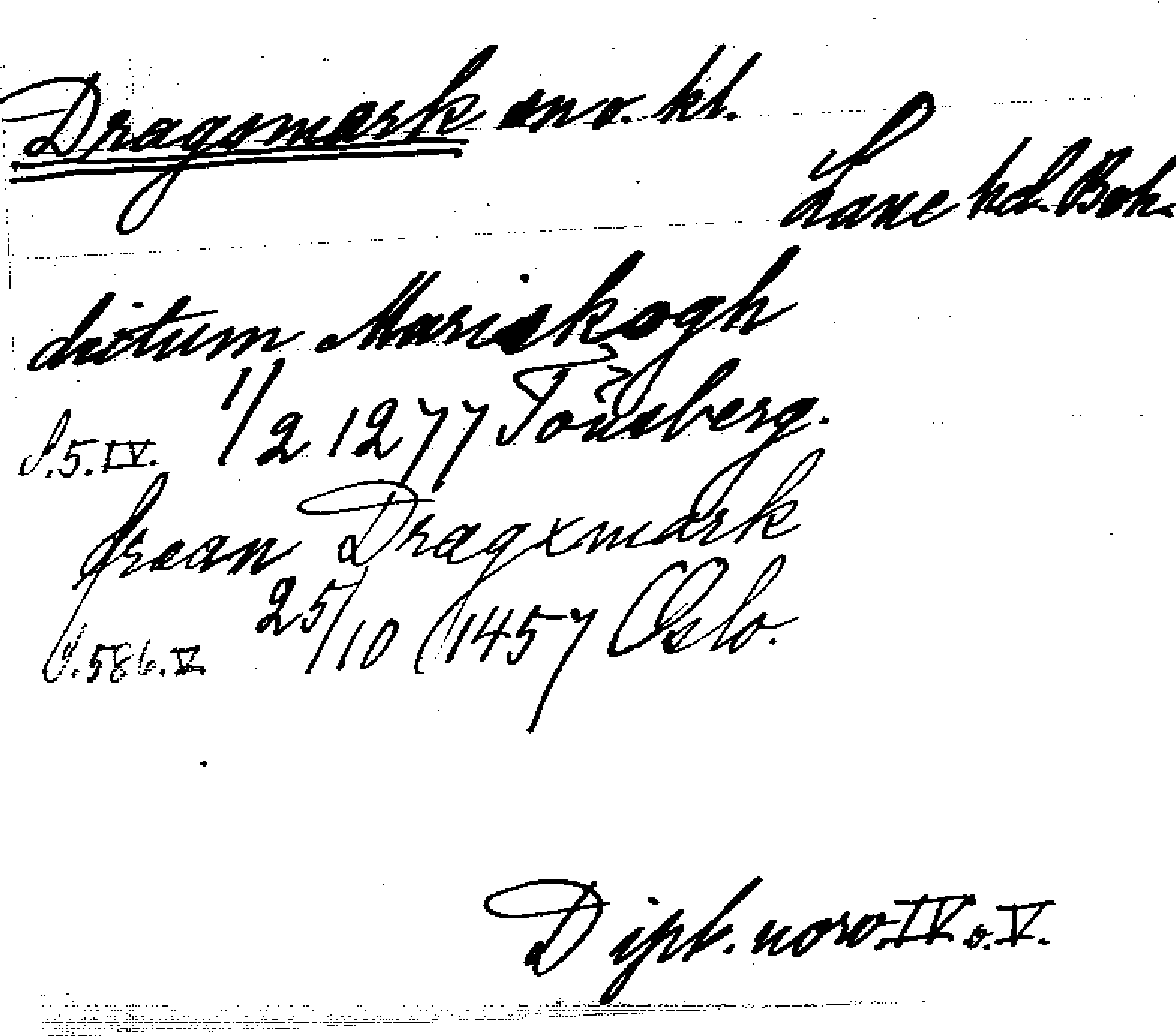 Dragsmark snv. kl.
Lane hd. Boh.
dictum Mariskogh
S.5.IV. 1/2 1277 Tönsberg.
fraan Dragxmark
S.586.V. 25/10 1457 Oslo.
Dipl. norv. IV o. V.